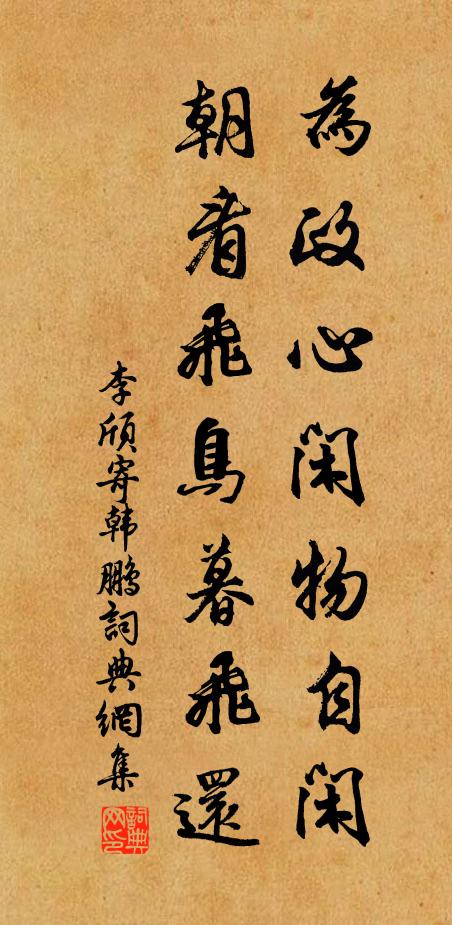 為政心閑物自閑
朝看飛鳥暮飛還
李頎寄韩鹏詞典網集
詞典网印